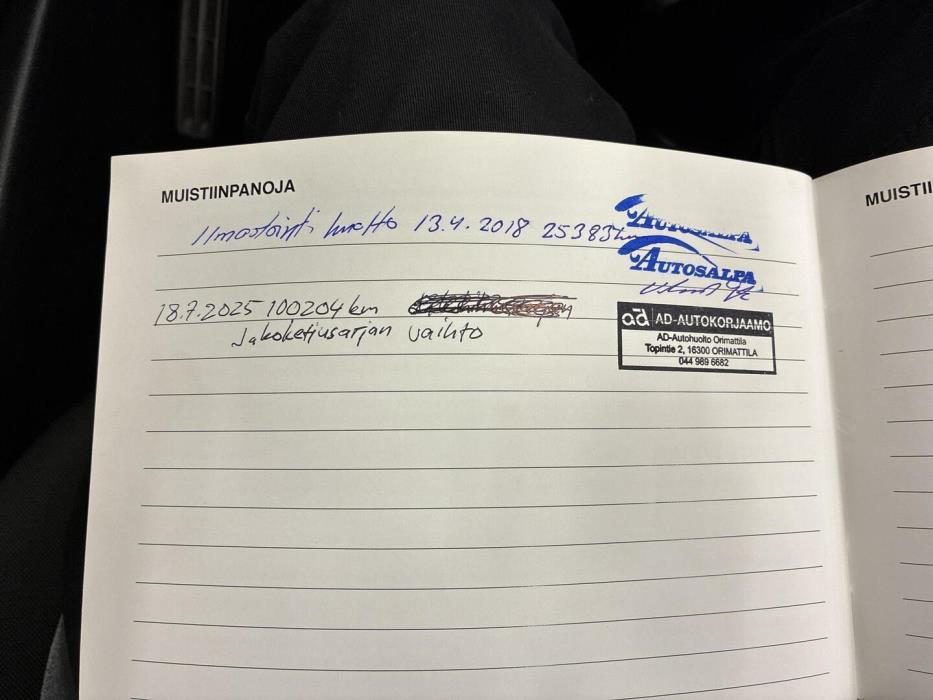 MUISTIINPANOJA
MUISTII
Ilmastointi huolto 13.4.2018 25383km
AUTOSALPA
AUTOSALPA
18.7.2025 100204 km
Jakoketjusarjan vaihto
ad AD-AUTOKORJAAMO
AD-Autohuolto Orimattila
Topintie 2, 16300 ORIMATTILA
044 989 6682